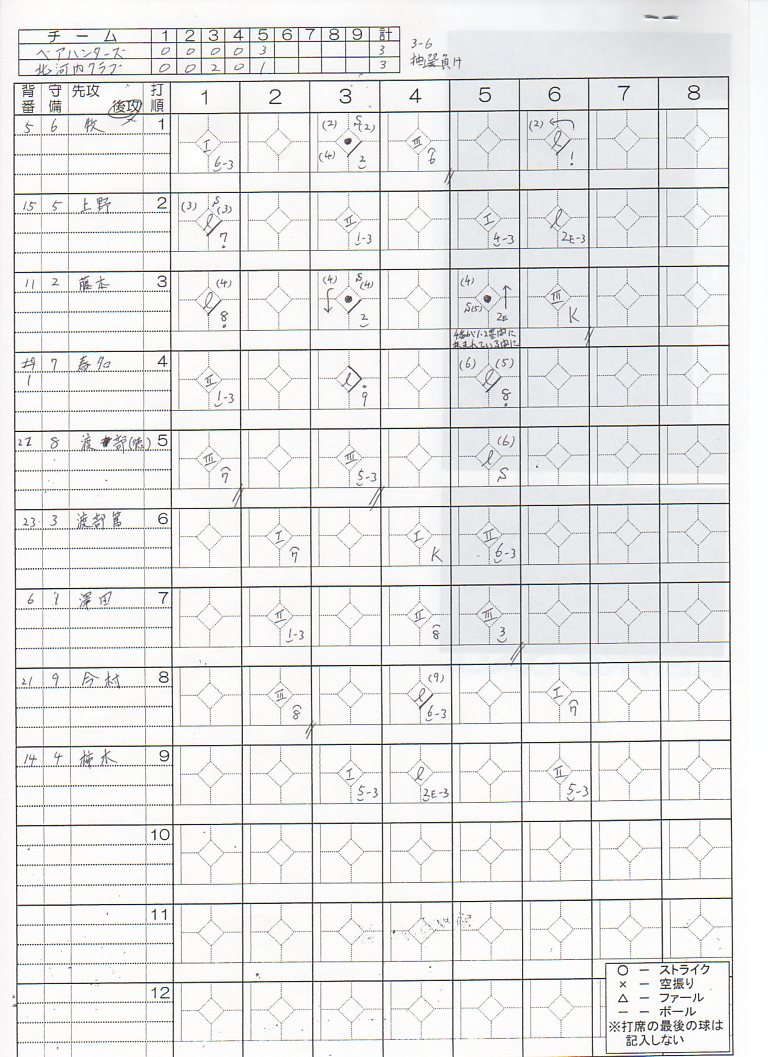 チーム 1 2 3 4 5 6 7 8 9 計
ベアハンターズ 0 0 0 0 3 3
北河内クラブ 0 0 2 0 1 3
3-6
抽選負け
背番 守備 先攻 後攻 打順 1 2 3 4 5 6 7 8
5 6 牧 1 I 6-3 (2) S(2) (4) 2 III 6 (2) l !
15 5 上野 2 (3) S(3) l 7 II 1-3 I 4-3 l 2E-3
11 2 藤本 3 (4) l 8 (4) S(4) 2 (4) S(5) 2E III K
7 春名 4 II 1-3 l 9 (6) (5) l 8
1
8 5 III 7 III 5-3 (6) l S
23 3 渡部篤 6 I 7 I K II 6-3
6 1 澤田 7 II 1-3 II 8 III 3
21 9 今村 8 III 8 (9) l 6-3 I 7
14 4 柿木 9 I 5-3 l 2E-3 II 5-3
10
11
12
○ ー ストライク
× ー 空振り
△ ー ファール
ー ー ボール
※打席の最後の球は
記入しない